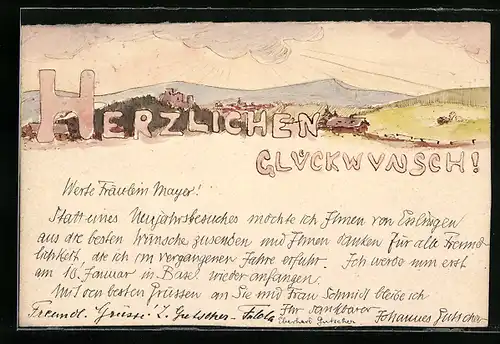 HERZLICHEN
GLÜCKWUNSCH!
Werte Fräulein Mayer!
Statt eines Neujahrsbesuches möchte ich Ihnen von Esslingen
aus die besten Wünsche zusenden und Ihnen danken für alle Freund
lichkeit, die ich im vergangenen Jahre erfuhr. Ich werde nun erst
am 16. Januar in Basel wieder anfangen.
Mit den besten Grüssen an Sie und Frau Schmidt bleibe ich
Ihr dankbarer Johannes Gutscher
Freundl. Grüsse: L. Gutscher-
Eberhard Gutscher